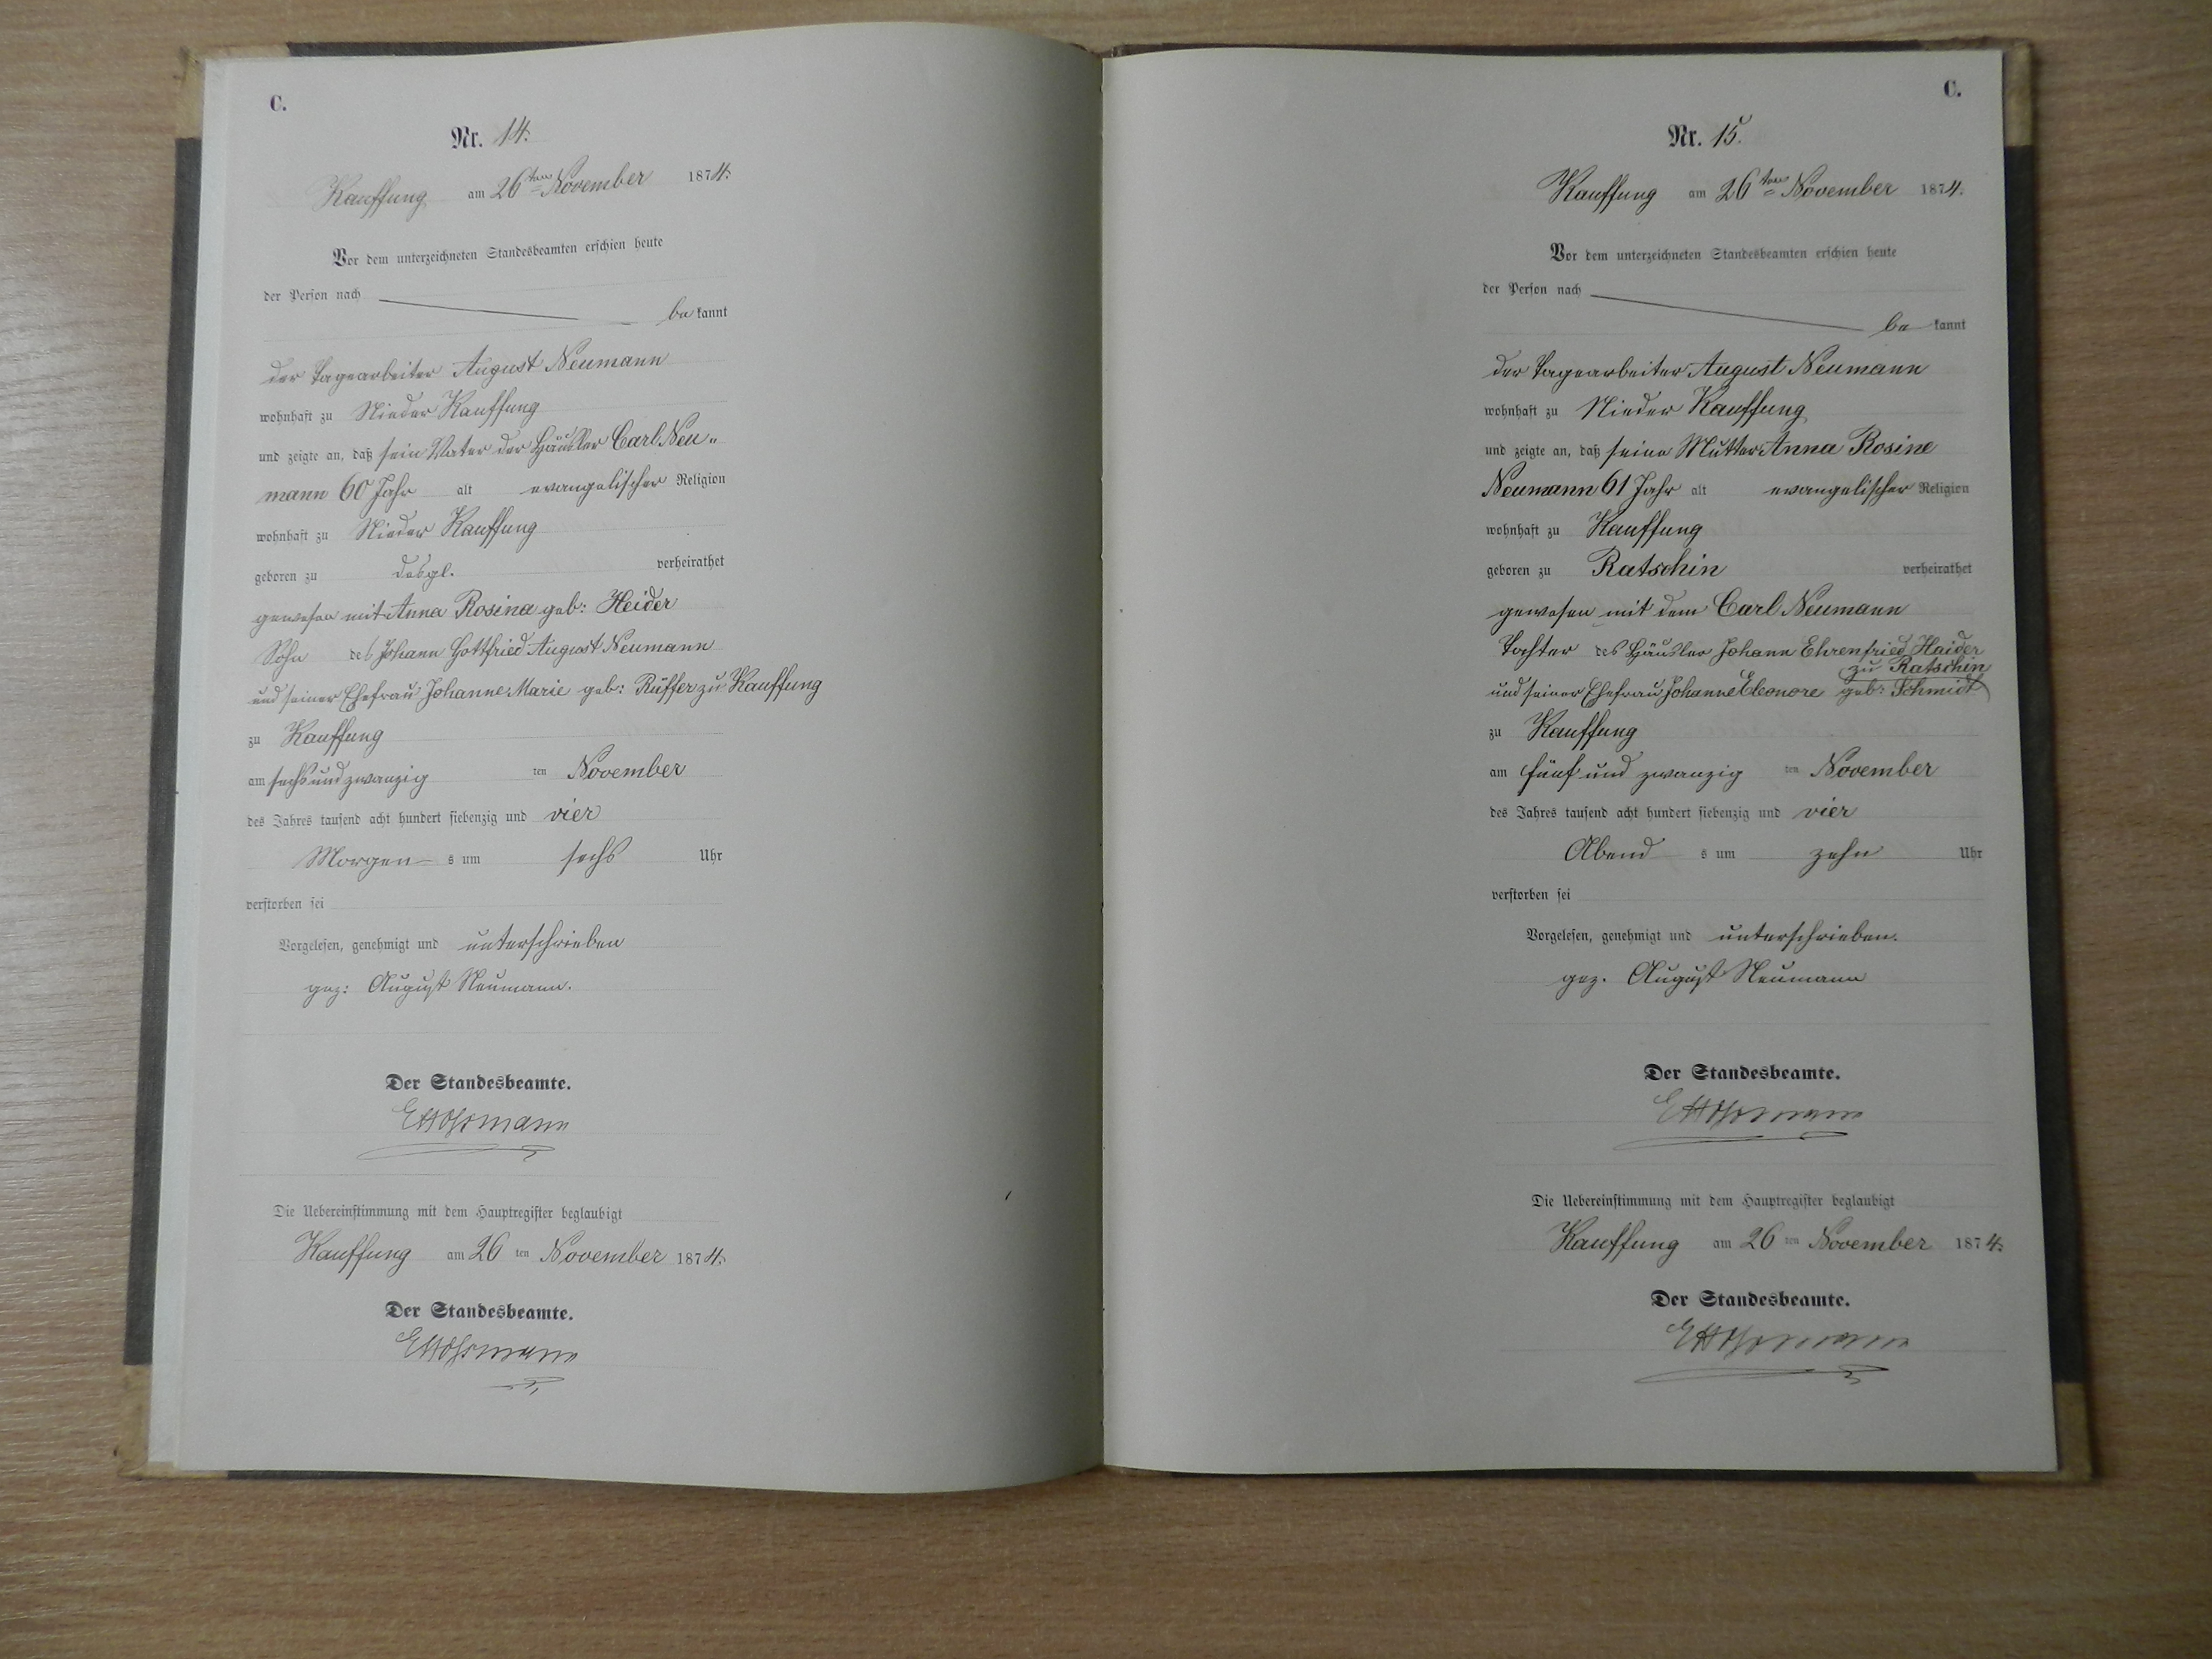 C.
Nr. 14.
Kauffung am 26ten November 1874.
Vor dem unterzeichneten Standesbeamten erschien heute
der Person nach
be kannt
der Tagearbeiter August Neumann
wohnhaft zu Nieder Kauffung
und zeigte an, daß sein Vater der Häusler Carl Neu-
mann 60 Jahr alt evangelischer Religion
wohnhaft zu Nieder Kauffung
geboren zu desgl. verheirathet
gewesen mit Anna Rosina geb: Heider
Sohn des Johann Gottfried August Neumann
und seiner Ehefrau Johanne Marie geb: Rüffer zu Kauffung
zu Kauffung
am sechs und zwanzig ten November
des Jahres tausend acht hundert siebenzig und vier
Morgen s um sechs Uhr
verstorben sei
Vorgelesen, genehmigt und unterschrieben
gez: August Neumann.
Der Standesbeamte.
Die Uebereinstimmung mit dem Hauptregister beglaubigt
Kauffung am 26 ten November 1874.
Der Standesbeamte.
C.
Nr. 15.
Kauffung am 26ten November 1874.
Vor dem unterzeichneten Standesbeamten erschien heute
der Person nach
be kannt
der Tagearbeiter August Neumann
wohnhaft zu Nieder Kauffung
und zeigte an, daß seine Mutter Anna Rosine
Neumann 61 Jahr alt evangelischer Religion
wohnhaft zu Kauffung
geboren zu Ratschin verheirathet
gewesen mit dem Carl Neumann
Tochter des Häusler Johann Ehrenfried Haider
zu Ratschin
und seiner Ehefrau Johanne Eleonore geb: Schmidt
zu Kauffung
am fünf und zwanzig ten November
des Jahres tausend acht hundert siebenzig und vier
Abend s um zehn Uhr
verstorben sei
Vorgelesen, genehmigt und unterschrieben.
gez. August Neumann
Der Standesbeamte.
Die Uebereinstimmung mit dem Hauptregister beglaubigt
Kauffung am 26 ten November 1874.
Der Standesbeamte.